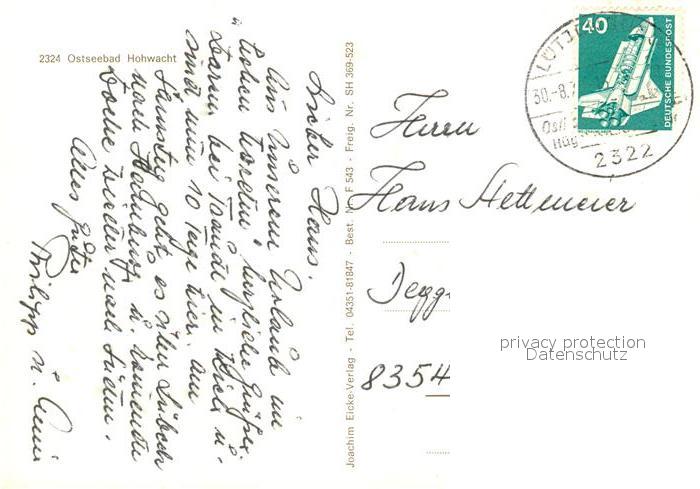 2324 Ostseebad Hohwacht
Lieber Hans.
Aus unserem Urlaub im
hohen Norden herzliche Grüße.
Waren bei in Kiel u.
sind nun 10 Tage hier. Am
Samstag geht es über Lübeck
nach Hamburg u. kommende
Woche wieder nach Süden.
Alles Gute
Philipp u.
Joachim Eicke-Verlag - Tel. 04351-81847 - Best. Nr. F 543 - Freig. Nr. SH 369-523
40
DEUTSCHE BUNDESPOST
LÜTJ
30.-8.7
Ost
2322
Herrn
Hans Hettmeier
Degg
8354
privacy protection
Datenschutz